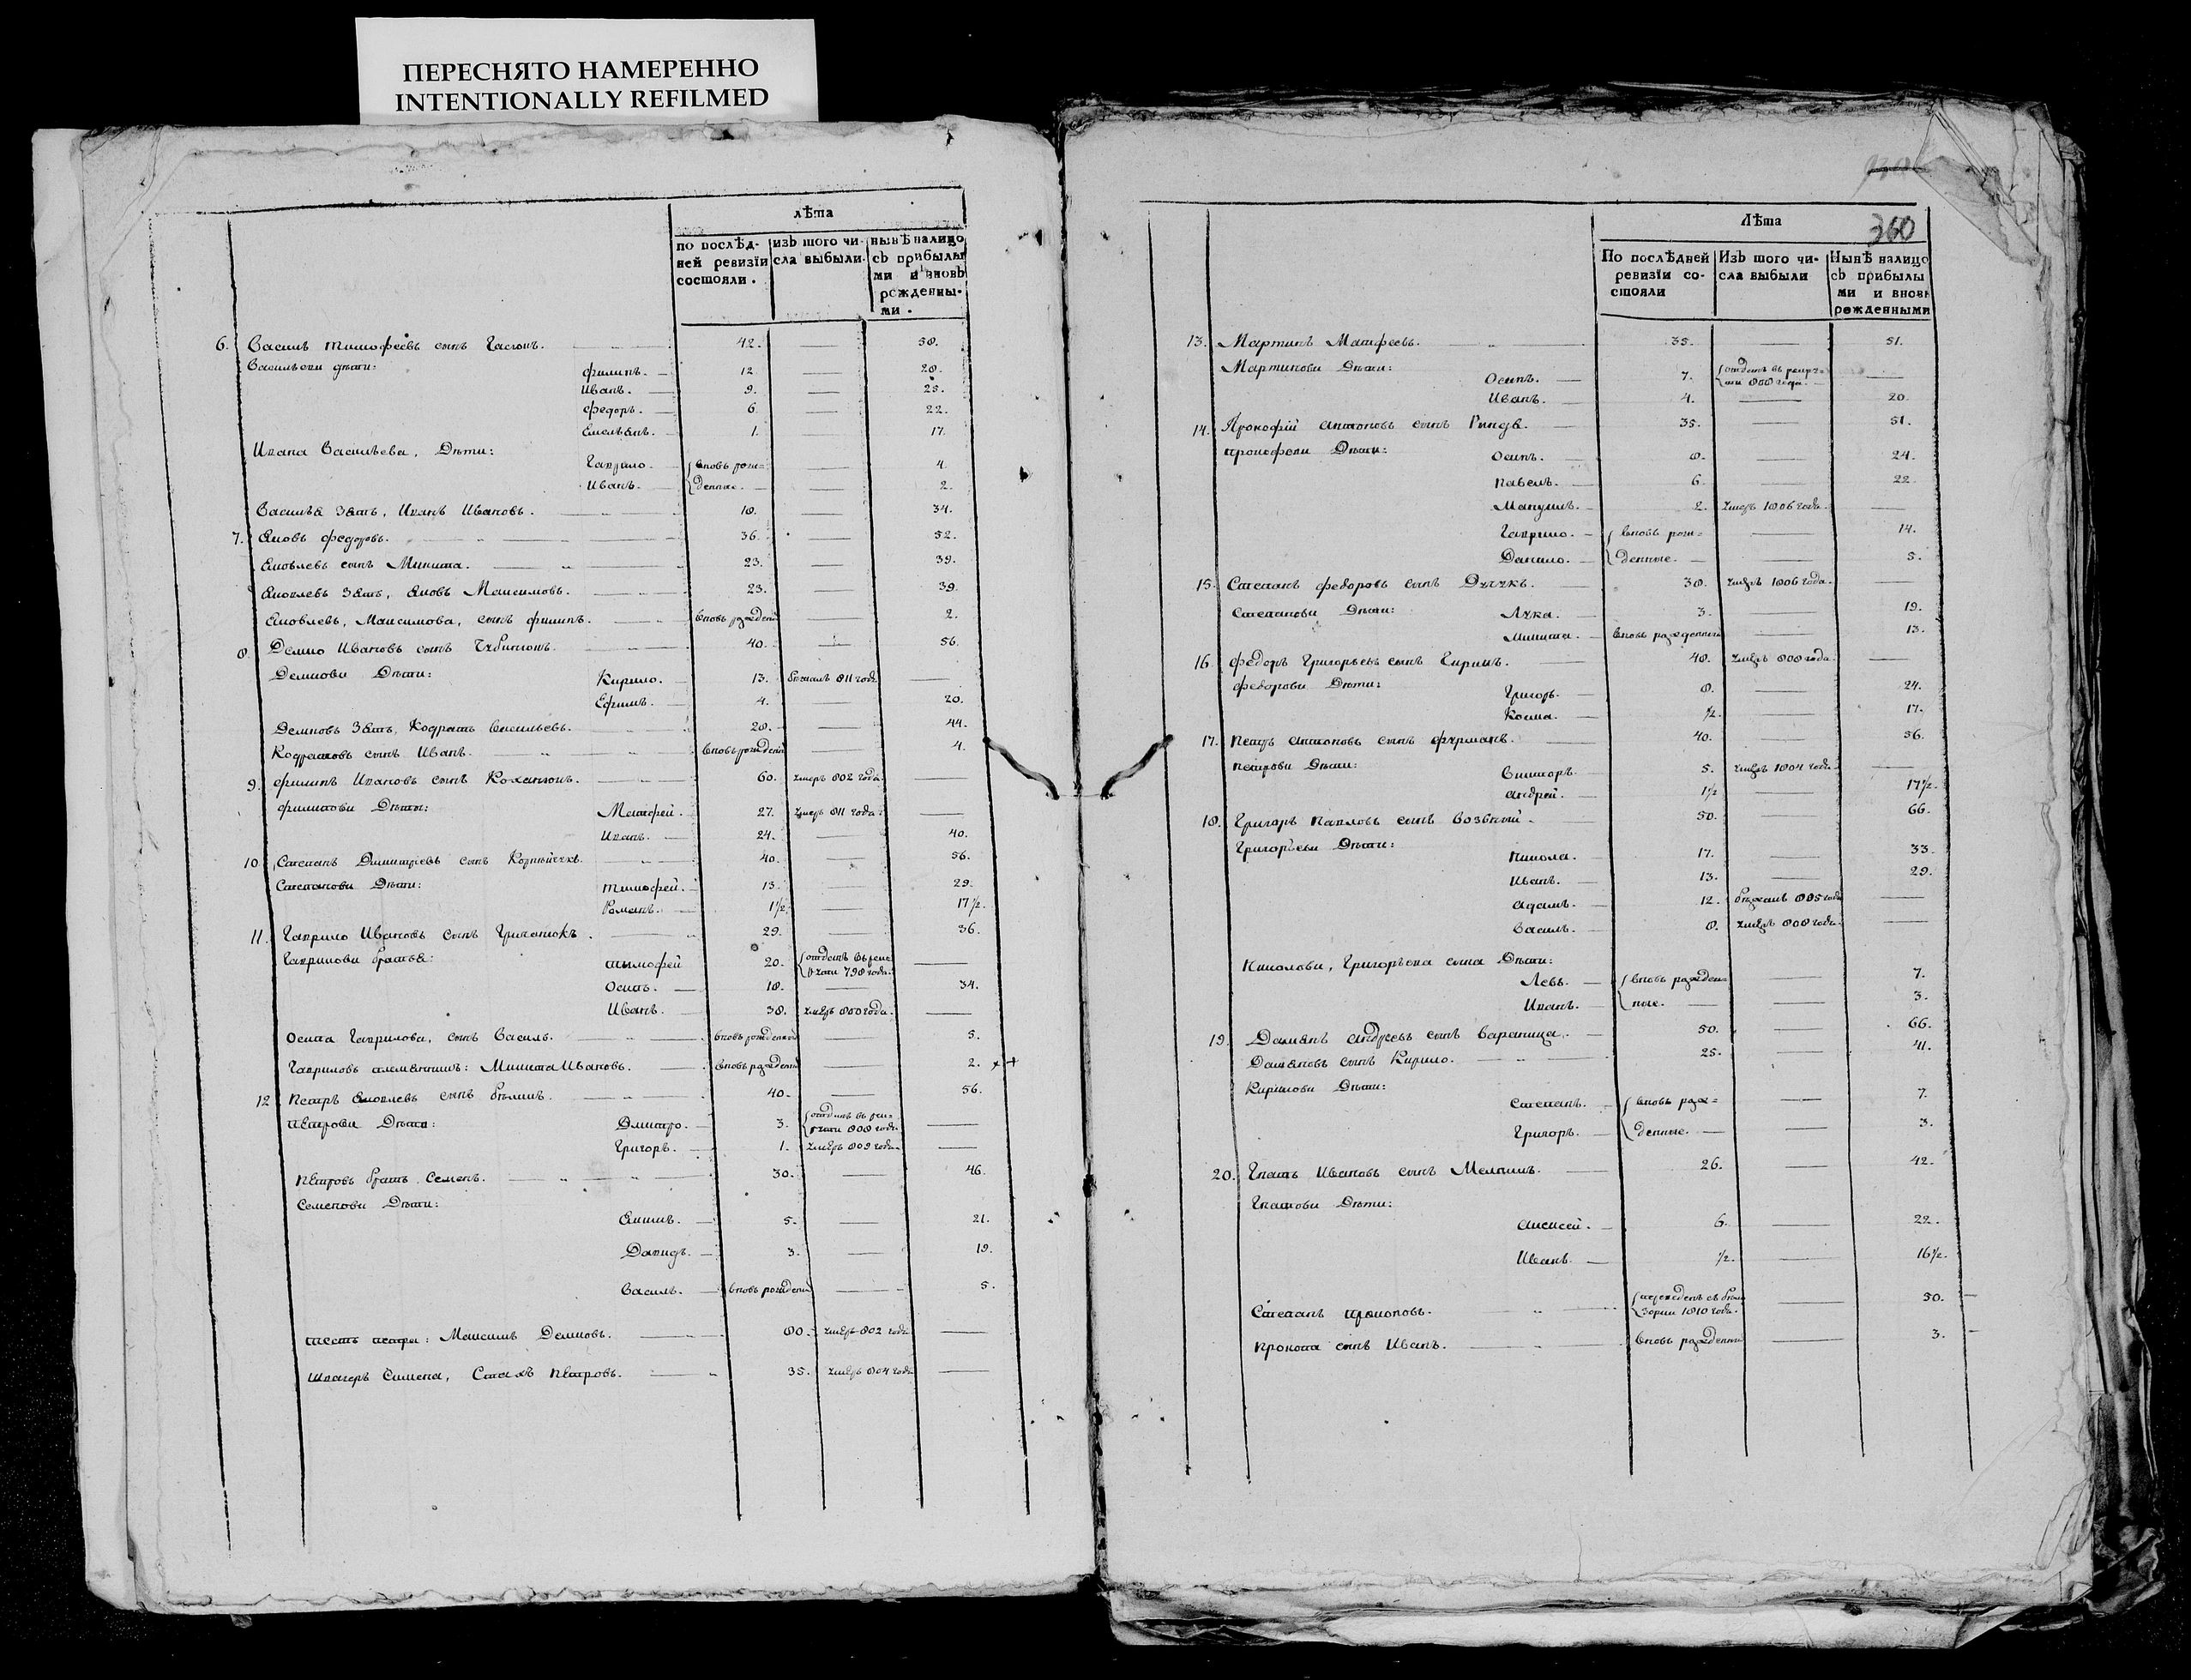 ПЕРЕСНЯТО НАМЕРЕННО
INTENTIONALLY REFILMED
лѣта
по послѣд- изъ того чи- нынѣ налицо
ней ревизїи сла выбыли. съ прибылы
состояли. ми и вновь
рожденны-
ми.
6. Василь тимофеевъ сынъ 42. 58.
Васильеви дѣти: филипъ. 12 28.
Иванъ. 9. 25.
федоръ. 6. 22.
Емельянъ. 1. 17.
Ивана Васильева, Дѣти: Гаврило. вновь рож= 4.
Иванъ. денные. 2.
Василья зять, Иванъ Ивановъ. 18. 34.
7. Яковъ федоровъ. 36. 52.
Яковлевъ сынъ Микита. 23. 39.
Яковлевъ зять, Яковъ Максимовъ. 23. 39.
Яковлевъ, Максимова, сынъ филипъ. вновь рожденъ 2.
8. Демко Ивановъ сынъ 40. 56.
Демкови Дѣти: Кирило. 13. бѣжалъ 811 года
Ефимъ. 4. 20.
Демковъ зять, Кодратъ Васильевъ. 28. 44.
Кодратовъ сынъ Иванъ. вновь рожденъ 4.
9. филипъ Ивановъ сынъ Коханюкъ. 60. умеръ 802 года.
филипови Дѣти: Матфей. 27. умеръ 811 года.
Иванъ. 24. 40.
10. Степанъ Дмитріевъ сынъ Корнѣйчукъ. 40. 56.
Степанови Дѣти: тимофей. 13. 29.
Романъ. 1½ 17½.
11. Гаврило Ивановъ сынъ Грицанюкъ. 29. 36.
Гаврилови братья: тимофей 20. отданъ въ рек=
рути 798 года.
Осипъ. 18. 34.
Иванъ. 38. умеръ 800 года.
Осипа Гаврилова, сынъ Василь. вновь рожденной 5.
Гавриловъ племянникъ: Микита Ивановъ. вновь рожденъ 2. × +
12 Петръ Яковлевъ сынъ 40. 56.
Петрови Дѣти: Дмитро. 3. отданъ въ рек=
рути 808 года.
Григоръ. 1. умеръ 809 года.
Петровъ братъ Семенъ. 30. 46.
Семенови Дѣти:
Якимъ. 5. 21.
Давидъ. 3. 19.
Василь. вновь рожденъ 5.
тесть петра: Максимъ Демковъ. 80. умеръ 802 года.
Швагеръ Симена, Стахъ Петровъ. 35. умеръ 804 года
360
Лѣта
По послѣдней Изъ того чи- Нынѣ налицо
ревизїи со- сла выбыли съ прибылы
стояли ми и вновь
рожденными
13. Мартинъ Матфеевъ. 35. 51.
Мартинови Дѣти: Осипъ. 7. отданъ въ рекру=
ти 808 года.
Иванъ. 4. 20.
14. Прокофій антоновъ сынъ Гинда. 35. 51.
прокофеви Дѣти: Осипъ. 8. 24.
Павелъ. 6. 22.
2. умеръ 1806 года.
Гаврило. вновь рож= 14.
Данило. денные. 5.
15. Степанъ федоровъ сынъ 38. умеръ 1806 года.
Степанови Дѣти: Лука. 3. 19.
Микита. вновь рожденный 13.
16. федоръ Григорьевъ сынъ 48. умеръ 808 года.
федорови Дѣти: Григоръ. 8. 24.
Косма. ½. 17.
17. Петръ антоновъ сынъ фурманъ. 40. 56.
петрови Дѣти: Викторъ. 5. умеръ 1804 года.
андрей. 1½ 17½.
18. Григоръ Павловъ сынъ Возьный. 50. 66.
Григорьеви Дѣти: Никола. 17. 33.
Иванъ. 13. 29.
адамъ. 12. бѣжалъ 805 года
Василь. 8. умеръ 808 года.
Николови, Григорьева сына Дѣти:
Левъ. вновь рожден= 7.
Иванъ. ные. 3.
19. Дамянъ андреевъ сынъ Вараница. 50. 66.
Дамяновъ сынъ Кирило. 25. 41.
Кирилови Дѣти:
Степанъ. вновь рож= 7.
Григоръ. денные. 3.
20. Гнатъ Ивановъ сынъ 26. 42.
Гнатови Дѣти:
алексей. 6. 22.
Иванъ. ½. 16½.
Степанъ прокоповъ. съ 30.
1810 года.
Прокопа сынъ Иванъ. вновь рожденный 3.